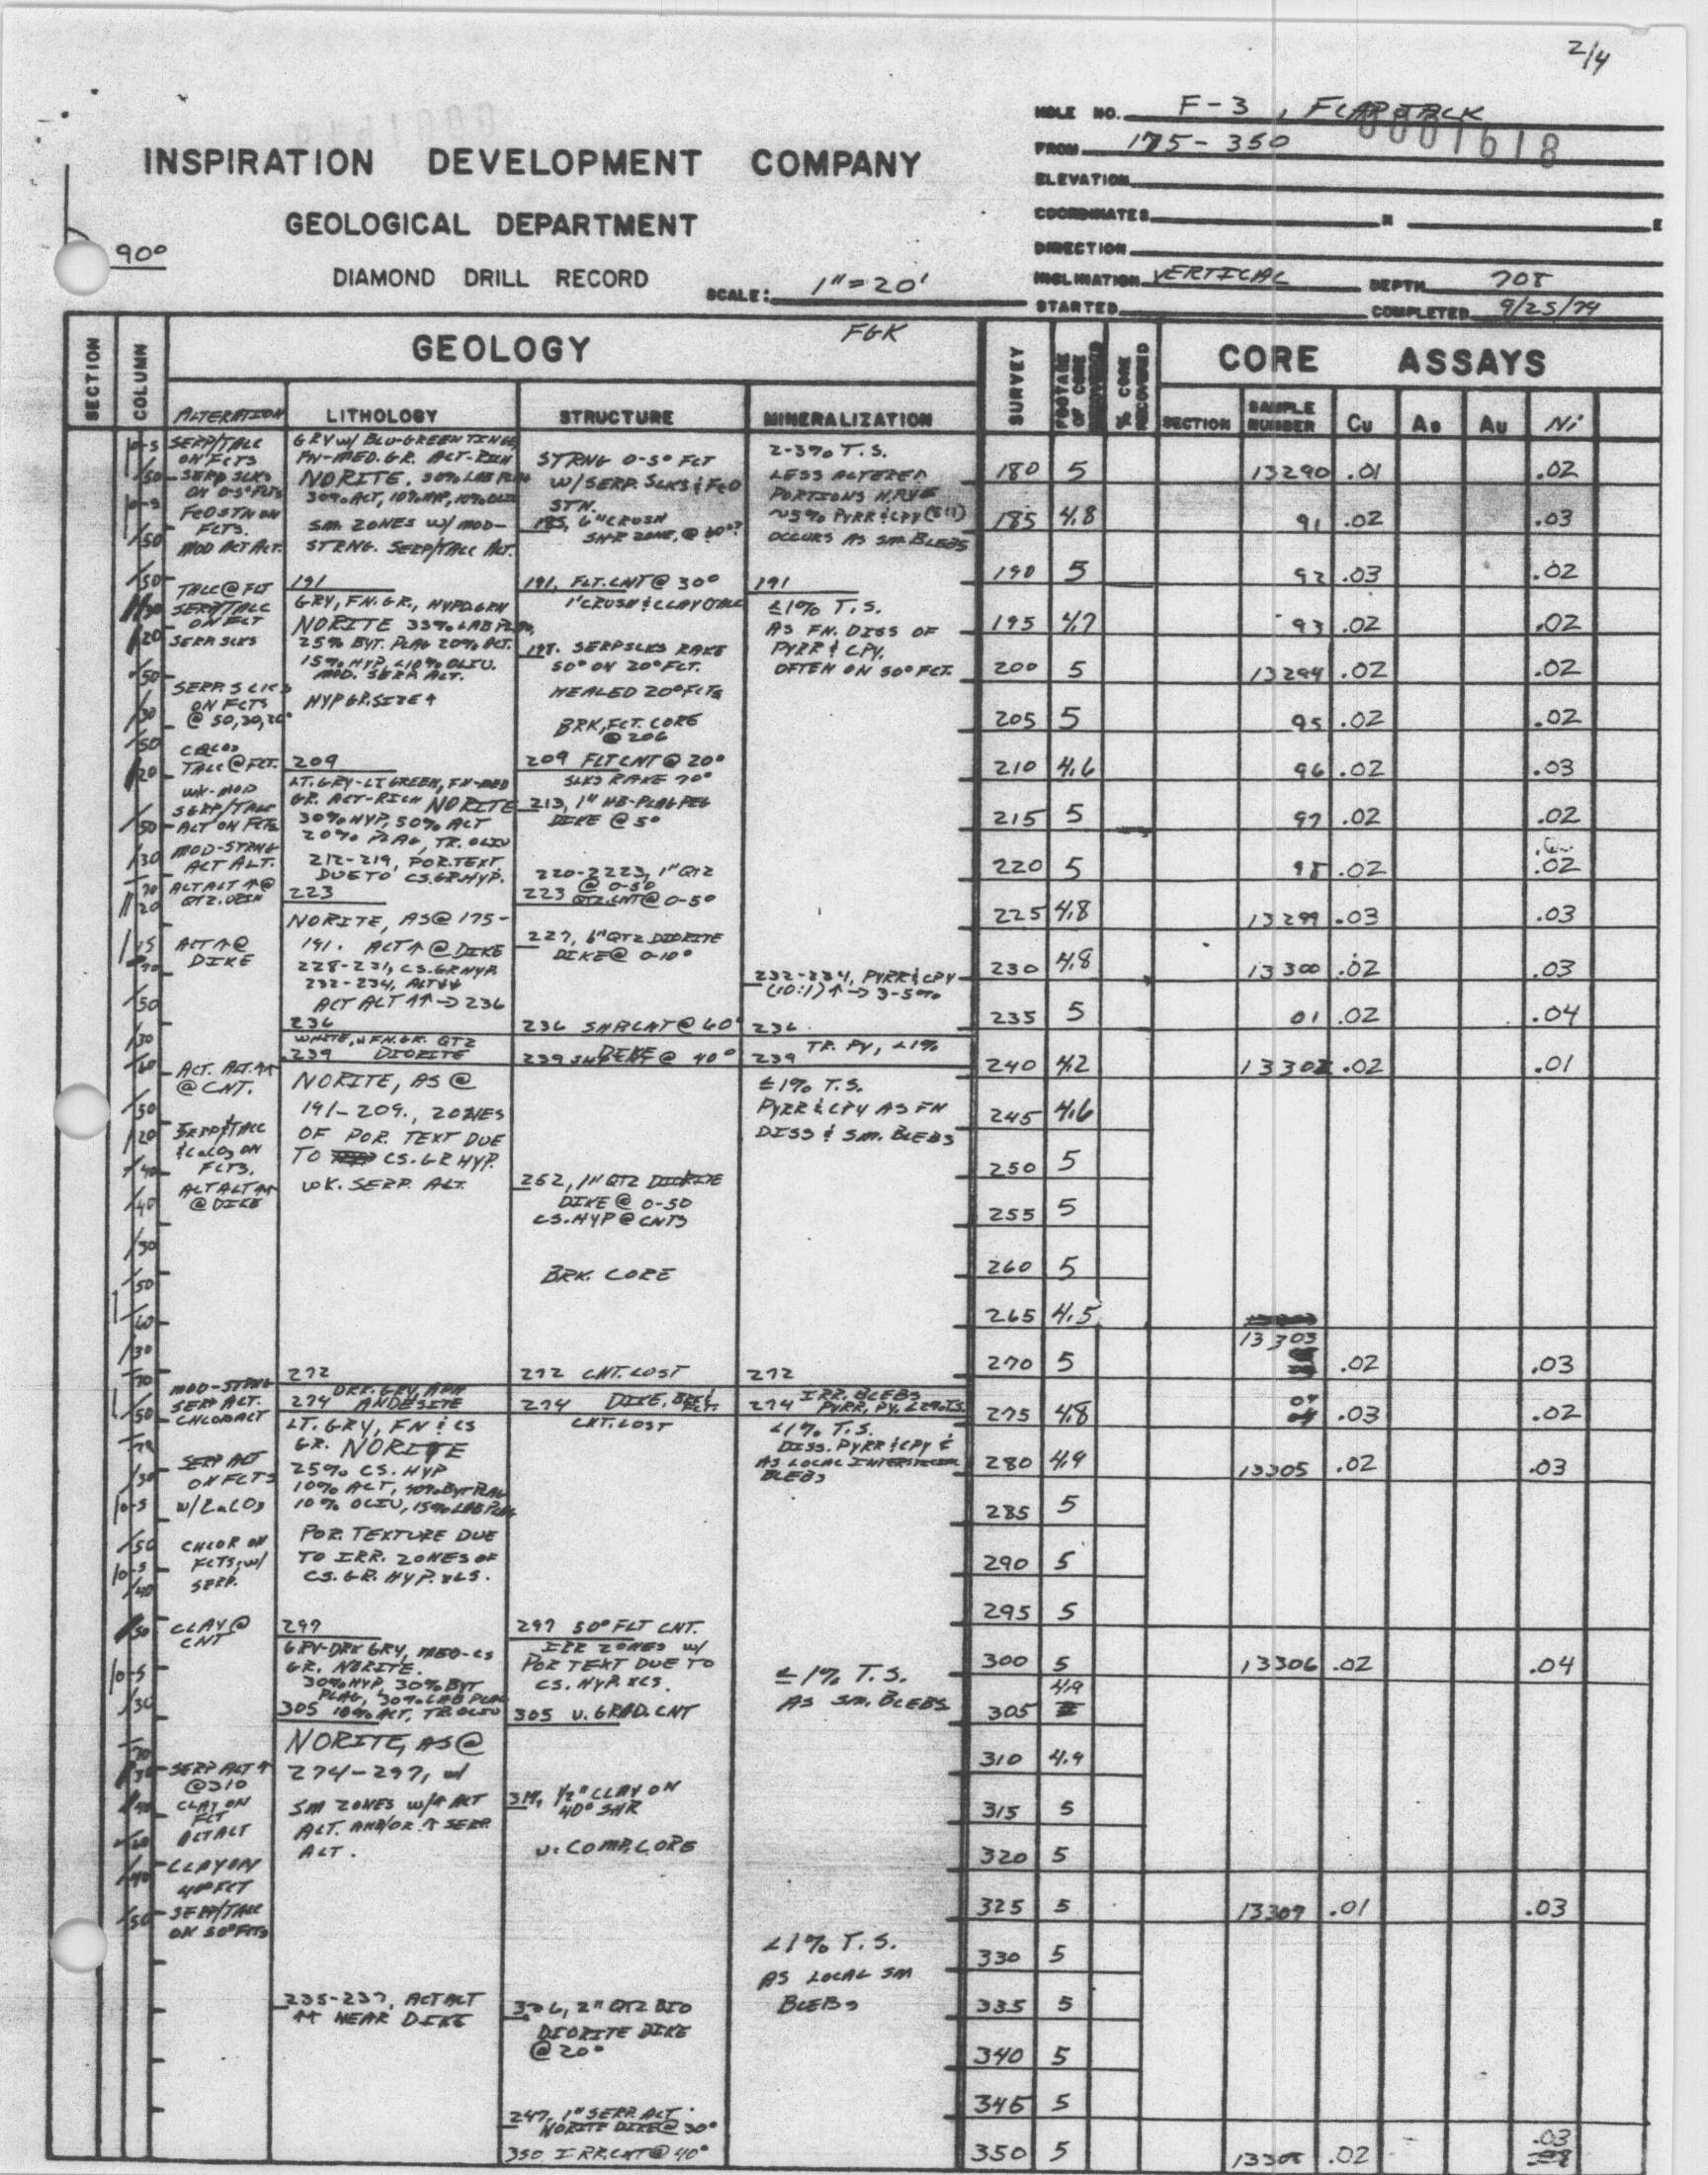 2/4
HOLE NO. F-3, FLAPJACK
0001618
FROM 175-350
INSPIRATION DEVELOPMENT COMPANY
ELEVATION
COORDINATES N E
GEOLOGICAL DEPARTMENT
DIRECTION
90°
DIAMOND DRILL RECORD
SCALE: 1"=20'
INCLINATION VERTICAL DEPTH 705
STARTED COMPLETED 9/25/79
SECTION COLUMN GEOLOGY FGK SURVEY FOOTAGE OF CORE RECOVERED % CORE RECOVERED CORE ASSAYS
ALTERATION LITHOLOGY STRUCTURE MINERALIZATION SECTION SAMPLE NUMBER Cu Ag Au Ni
SERP/TALC
ON FCTS
SERP SLKS
ON 0-5° FLTS
FEO STN ON
FCTS.
MOD ACT ALT.
TALC @ FLT
SERP/TALC
ON FCT
SERP SLKS
SERP. SLKS
ON FCTS
CaCO3
TALC @ FLT.
WK-MOD
SERP/TALC
ALT ON FCTS
MOD-STRNG
ACT ALT.
ACT ALT ↑ @
QTZ. VEIN
ACT ↑ @
DIKE
ACT. ALT. ↑↑
@ CNT.
SERP/TALC
& CaCO3 ON
FCTS.
ACT ALT ↑↑
@ DIKE
MOD-STRNG
SERP ALT.
CHLOR ALT
SERP ALT
ON FCTS
w/ CaCO3
CHLOR ON
FCTS, w/
SERP.
CLAY @
CNT
SERP ALT ↑
@ 310
CLAY ON
FCT
ACT ALT
CLAY ON
40° FCT
SERP/TALC
ON 50° FCTS
GRY w/ BLU-GREEN TINGE
FN-MED. GR. ACT-RICH
NORITE. 30% LAB PLAG
30% ACT, 10% HYP, 10% OLIV
SM. ZONES w/ MOD-
STRNG. SERP/TALC ALT.
191
GRY, FN. GR., HYPD. GRN
NORITE 35% LAB PLAG,
25% BYT. PLAG 20% ACT.
15% HYP, <10% OLIV.
MOD. SERP. ALT.
HYP GR. SIZE ↑
209
LT. GRY-LT GREEN, FN-MED
GR. ACT-RICH NORITE
30% HYP, 50% ACT
20% PLAG, TR. OLIV
212-219, POR. TEXT
DUE TO CS. GR. HYP.
223
NORITE, AS @ 175-
191. ACT ↑ @ DIKE
228-231, CS. GR HYP
232-234, ALT ↓↓
ACT ALT ↑↑ → 236
236
WHITE, FN. GR. QTZ
239 DIORITE
NORITE, AS @
191-209., ZONES
OF POR. TEXT DUE
TO CS. GR HYP.
WK. SERP. ALT.
272
DRK. GRY, APH
274 ANDESITE
LT. GRY, FN & CS
GR. NORITE
25% CS. HYP
10% ACT, 40% BYT PLAG
10% OLIV, 15% LAB PLAG
POR. TEXTURE DUE
TO IRR. ZONES OF
CS. GR. HYP. XLS.
297
GRY-DRK GRY, MED-CS
GR. NORITE.
30% HYP, 30% BYT
PLAG, 30% LAB PLAG
305 10% ACT, TR OLIV
NORITE, AS @
274-297, w/
SM ZONES w/ ↑ ACT
ALT. AND/OR ↑ SERP
ALT.
235-237, ACT ALT
↑↑ NEAR DIKE
STRNG 0-5° FLT
w/ SERP. SLKS & FeO
STN.
185, 6" CRUSH
SHR ZONE, @
191, FLT. CNT @ 30°
1" CRUSH & CLAY
SERP SLKS RAKE
50° ON 20° FLT.
HEALED 20° FLTS
BRK, FCT. CORE
@ 206
209 FLT CNT @ 20°
SLKS RAKE 70°
213, 1" HB-PLAG PEG
DIKE @ 5°
220-2223, 1" QTZ
@ 0-50
223 QTZ. CNT @ 0-5°
227, 6" QTZ DIORITE
DIKE @ 0-10°
236 SHR CNT @ 60°
DIKE
239 CNT @ 40°
252, 1" QTZ DIORITE
DIKE @ 0-50
CS. HYP @ CNTS
BRK. CORE
272 CNT. LOST
274 DIKE, BRK
CNT. LOST
297 50° FLT CNT.
IRR ZONES w/
POR TEXT DUE TO
CS. HYP. XLS.
305 V. GRAD. CNT
1/2" CLAY ON
40° SHR
V. COMP. CORE
336, 2" QTZ BIO
DIORITE DIKE
@ 20°
247, 1" SERP. ALT.
NORITE DIKE @ 30°
350 IRR. CNT @ 40°
2-3% T.S.
LESS ALTERED
PORTIONS HAVE
~5% PYRR & CPY (5:1)
OCCURS AS SM. BLEBS
191
≤1% T.S.
AS FN. DISS OF
PYRR & CPY.
OFTEN ON 50° FCT.
232-234, PYRR & CPY
(10:1) ↑ → 3-5%
236
TR. PY, <1%
239
≤1% T.S.
PYRR & CPY AS FN
DISS & SM. BLEBS
272
IRR. BLEBS
274 PYRR, PY. <2% T.S.
<1% T.S.
DISS. PYRR & CPY &
AS LOCAL INTERSTICIAL
BLEBS
≤1% T.S.
AS SM. BLEBS
<1% T.S.
AS LOCAL SM
BLEBS
180 5 13290 .01 .02
185 4.8 91 .02 .03
190 5 92 .03 .02
195 4.7 93 .02 .02
200 5 13294 .02 .02
205 5 95 .02 .02
210 4.6 96 .02 .03
215 5 97 .02 .02
220 5 98 .02 .02
225 4.8 13299 .03 .03
230 4.8 13300 .02 .03
235 5 01 .02 .04
240 4.2 13302 .02 .01
245 4.6
250 5
255 5
260 5
265 4.5
270 5 13303 .02 .03
275 4.8 04 .03 .02
280 4.9 13305 .02 .03
285 5
290 5
295 5
300 5 13306 .02 .04
305 4.9
310 4.9
315 5
320 5
325 5 13307 .01 .03
330 5
335 5
340 5
345 5
350 5 13308 .02 .03